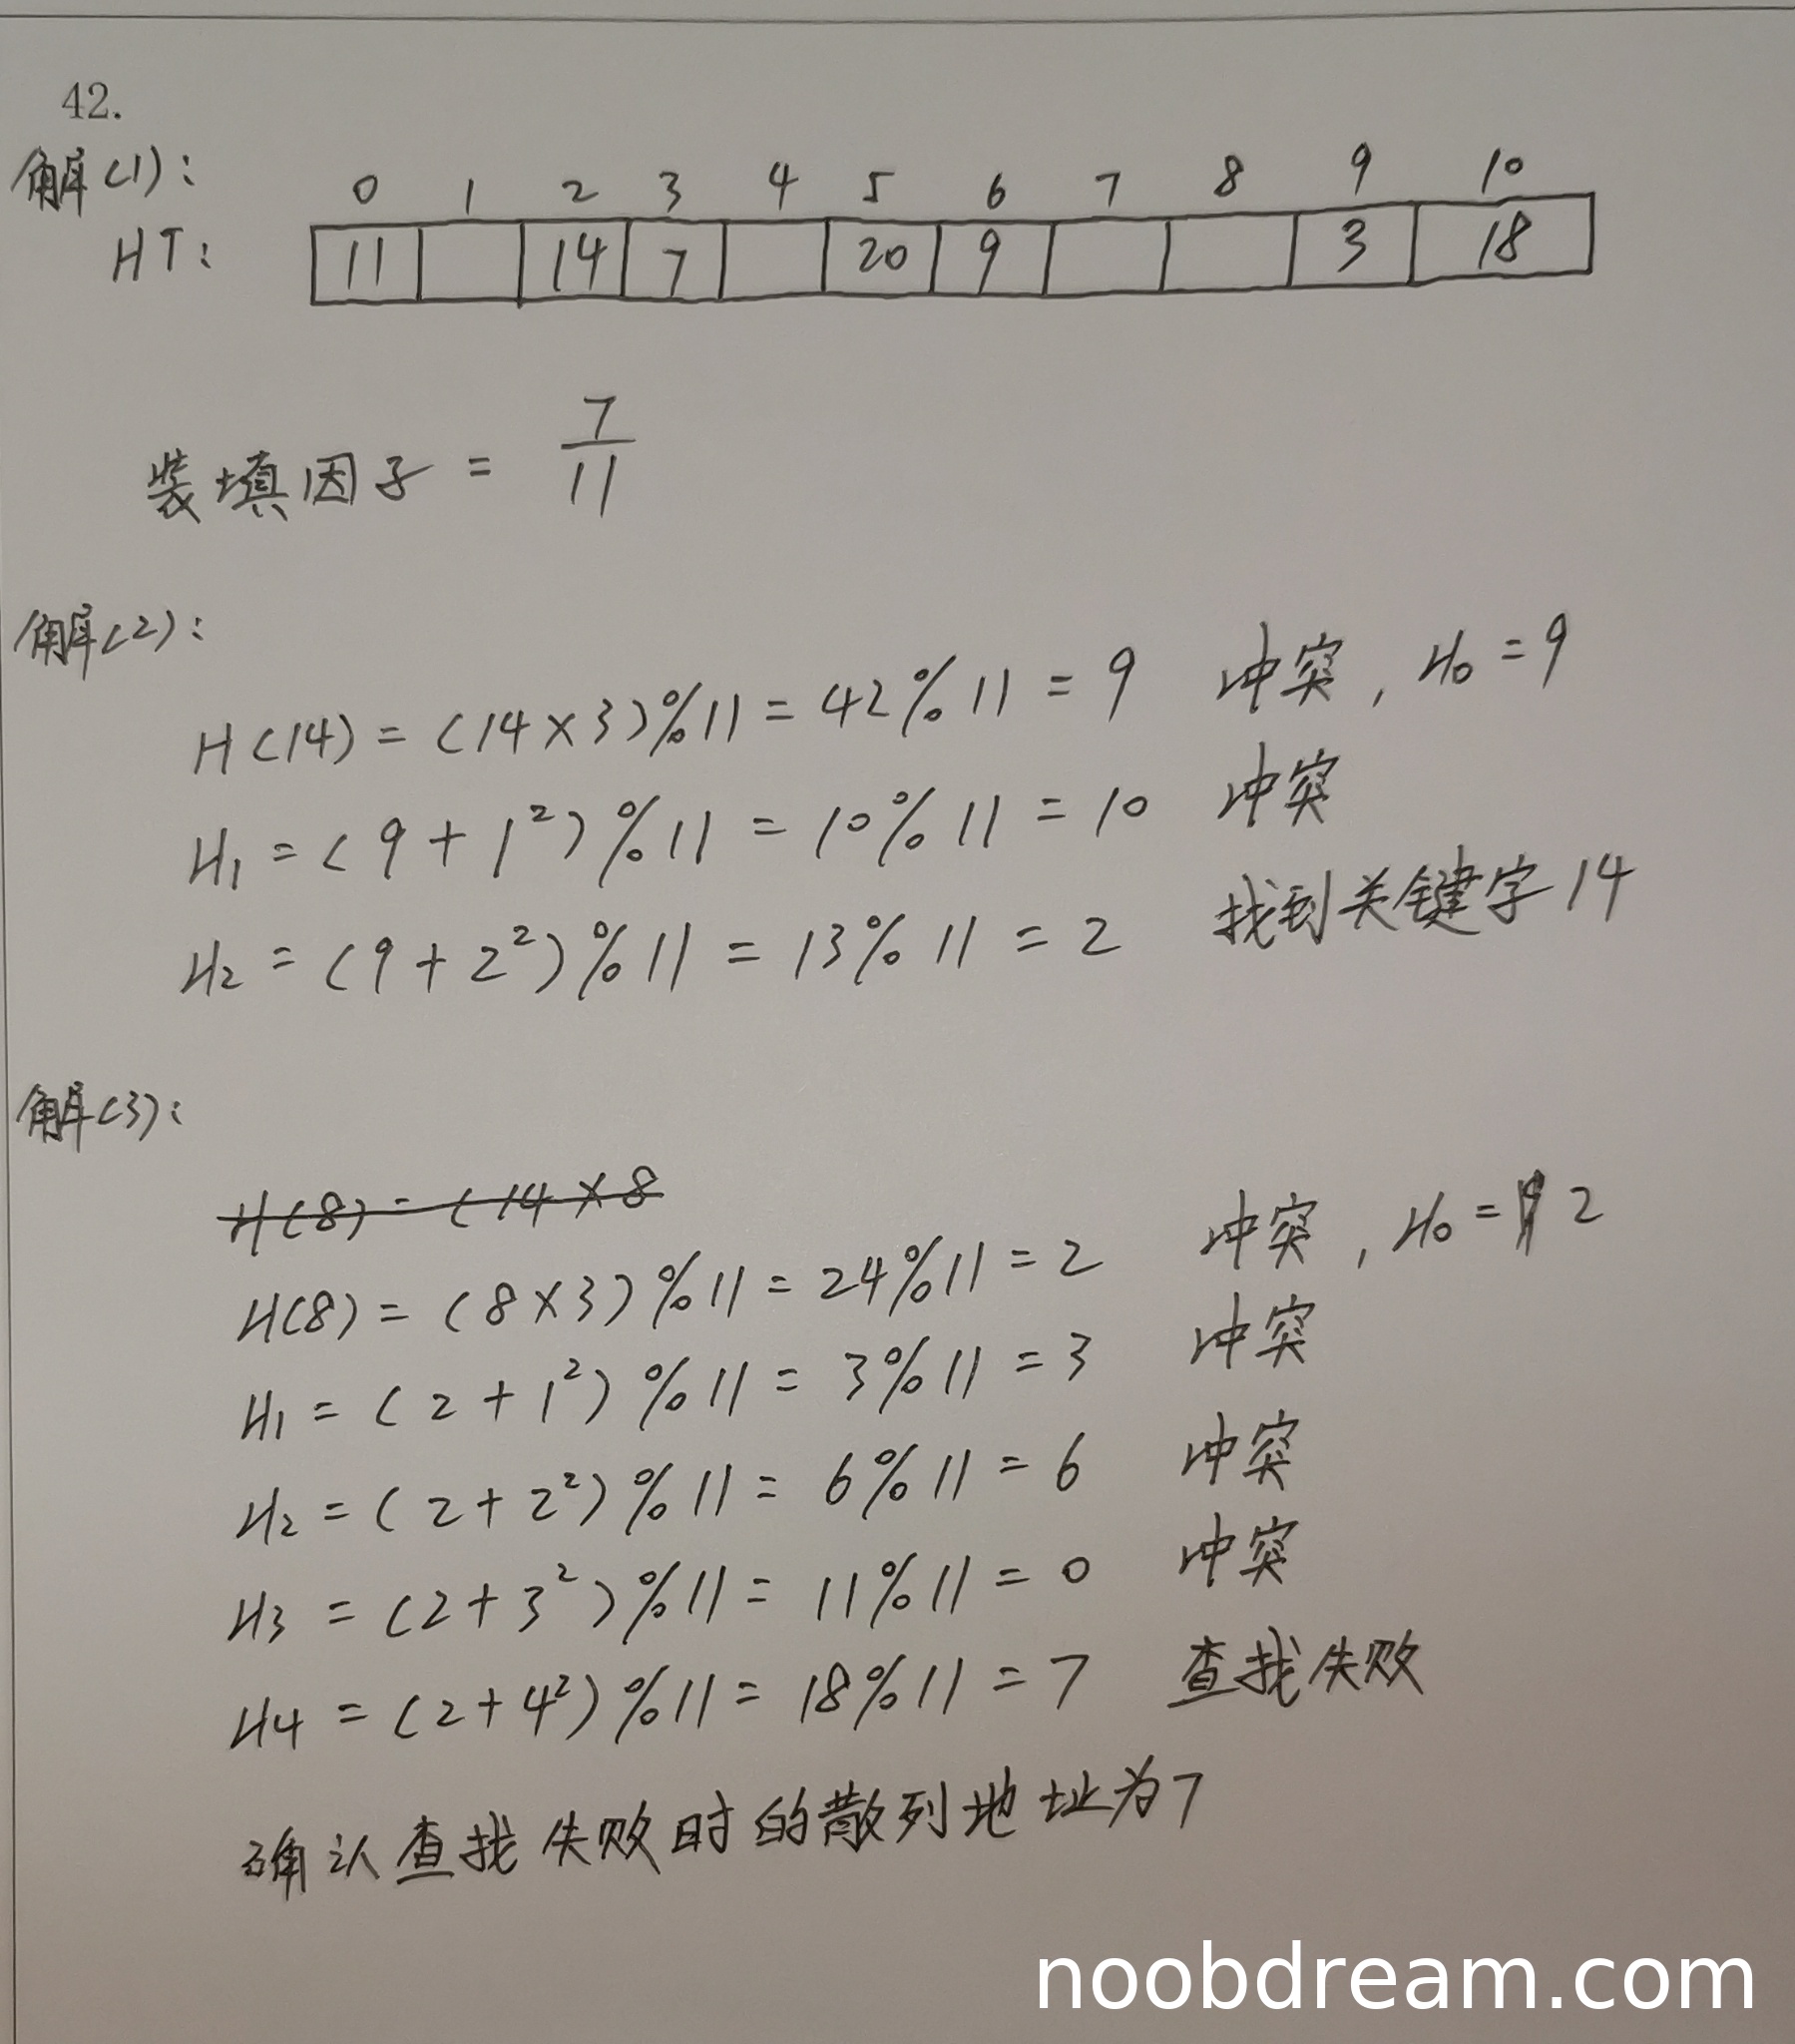 42.
解(1):
0 1 2 3 4 5 6 7 8 9 10
HT: 11 14 7 20 9 3 18
装填因子 = 7/11
解(2):
H(14) = (14×3)%11 = 42%11 = 9 冲突, H₀ = 9
H₁ = (9+1²)%11 = 10%11 = 10 冲突
H₂ = (9+2²)%11 = 13%11 = 2 找到关键字14
解(3):
H(8) = (14×8
H(8) = (8×3)%11 = 24%11 = 2 冲突, H₀ = 2
H₁ = (2+1²)%11 = 3%11 = 3 冲突
H₂ = (2+2²)%11 = 6%11 = 6 冲突
H₃ = (2+3²)%11 = 11%11 = 0 冲突
H₄ = (2+4²)%11 = 18%11 = 7 查找失败
确认查找失败时的散列地址为7
noobdream.com